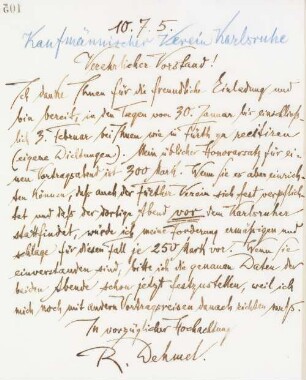 102
10.7.5.
Kaufmännischer Verein Karlsruhe
Verehrlicher Vorstand!
Ich danke Ihnen für die freundliche Einladung und
bin bereit, in den Tagen vom 30. Januar bis einschließ-
lich 3. Februar bei Ihnen wie in Fürth zu recitiren
(eigene Dichtungen). Mein üblicher Honorarsatz für ei-
nen Vortragsabend ist 300 Mark. Wenn Sie es aber einrich-
ten können, daß auch der Fürther Verein sich fest verpflich-
tet und daß der dortige Abend vor dem Karlsruher
stattfindet, würde ich meine Forderung ermäßigen und
schlage für diesen Fall je 250 Mark vor. Wenn Sie
einverstanden sind, bitte ich die genauen Daten der
beiden Abende schon jetzt festzustellen, weil ich
mich noch mit andern Vortragsreisen danach richten muß.
In vorzüglicher Hochachtung
R. Dehmel.